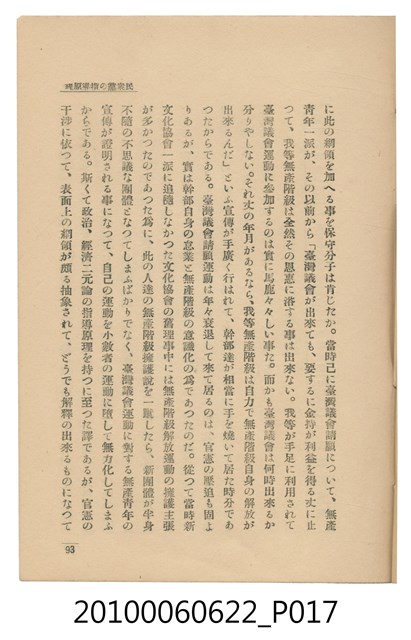 民衆黨の指導原理
に此の綱領を加へる事を保守分子は肯じたか。當時己に臺灣議會請願について、無產
青年一派が、その以前から「臺灣議會が出來ても、要するに金持が利益を得る丈に止
つて、我等無產階級は全然その恩惠に浴する事は出來ない。我等が手足に利用されて
臺灣議會運動に參加するのは實に馬鹿々々しい事だ。而かも臺灣議會は何時出來るか
分りやしない。それ丈の年月があるなら、我等無產階級は自力で無產階級自身の解放が
出來るんだ」といふ宣傳が手廣く行はれて、幹部達が相當に手を燒いて居た時分であ
つたからである。臺灣議會請願運動は年々衰退して來て居るのは、官憲の壓迫も固よ
りあるが、實は幹部自身の怠業と無產階級の意識化の爲であつたのだ。從つて當時新
文化協會一派に追隨しなかつた文化協會の舊理事中には無產階級解放運動の擁護主張
が多かつたのであつた爲に、此の人達の無產階級擁護說を一蹴したら、新團體が半身
不隨の不思議な團體となつてしまふばかりでなく、臺灣議會運動に對する無產青年の
宣傳が證明される事になつて、自己の運動を小數者の運動に墮して無力化してしまふ
からである。斯くて政治、經濟二元論の指導原理を持つに至つた譯であるが、官憲の
干涉に依つて、表面上の綱領が頗る抽象されて、どうでも解釋の出來るものになつて
93
20100060622_P017